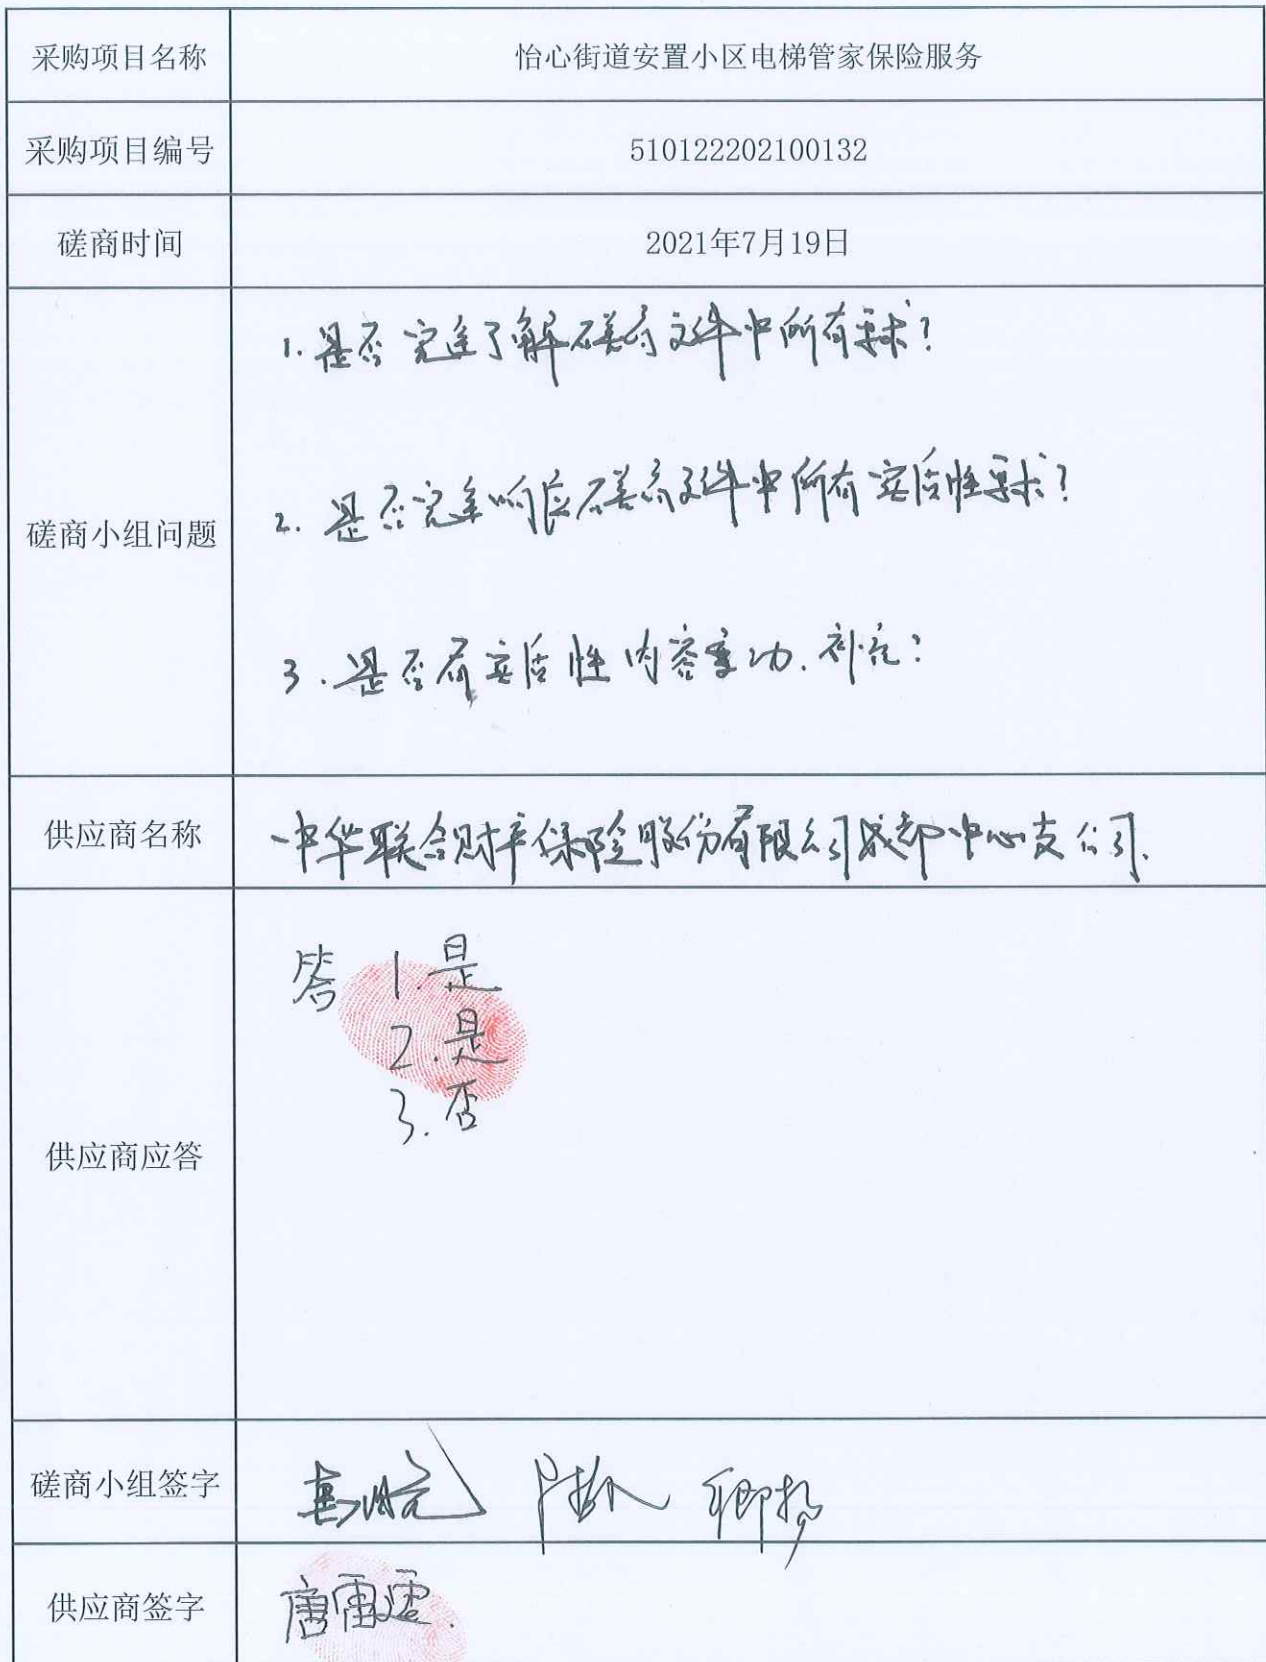 采购项目名称 怡心街道安置小区电梯管家保险服务
采购项目编号 510122202100132
磋商时间 2021年7月19日
磋商小组问题
1. 是否完全了解磋商文件中所有要求?
2. 是否完全响应磋商文件中所有实质性要求?
3. 是否有实质性内容变动、补充?
供应商名称 中华联合财产保险股份有限公司成都中心支公司.
供应商应答
答 1.是
2.是
3.否
磋商小组签字
供应商签字 唐雷